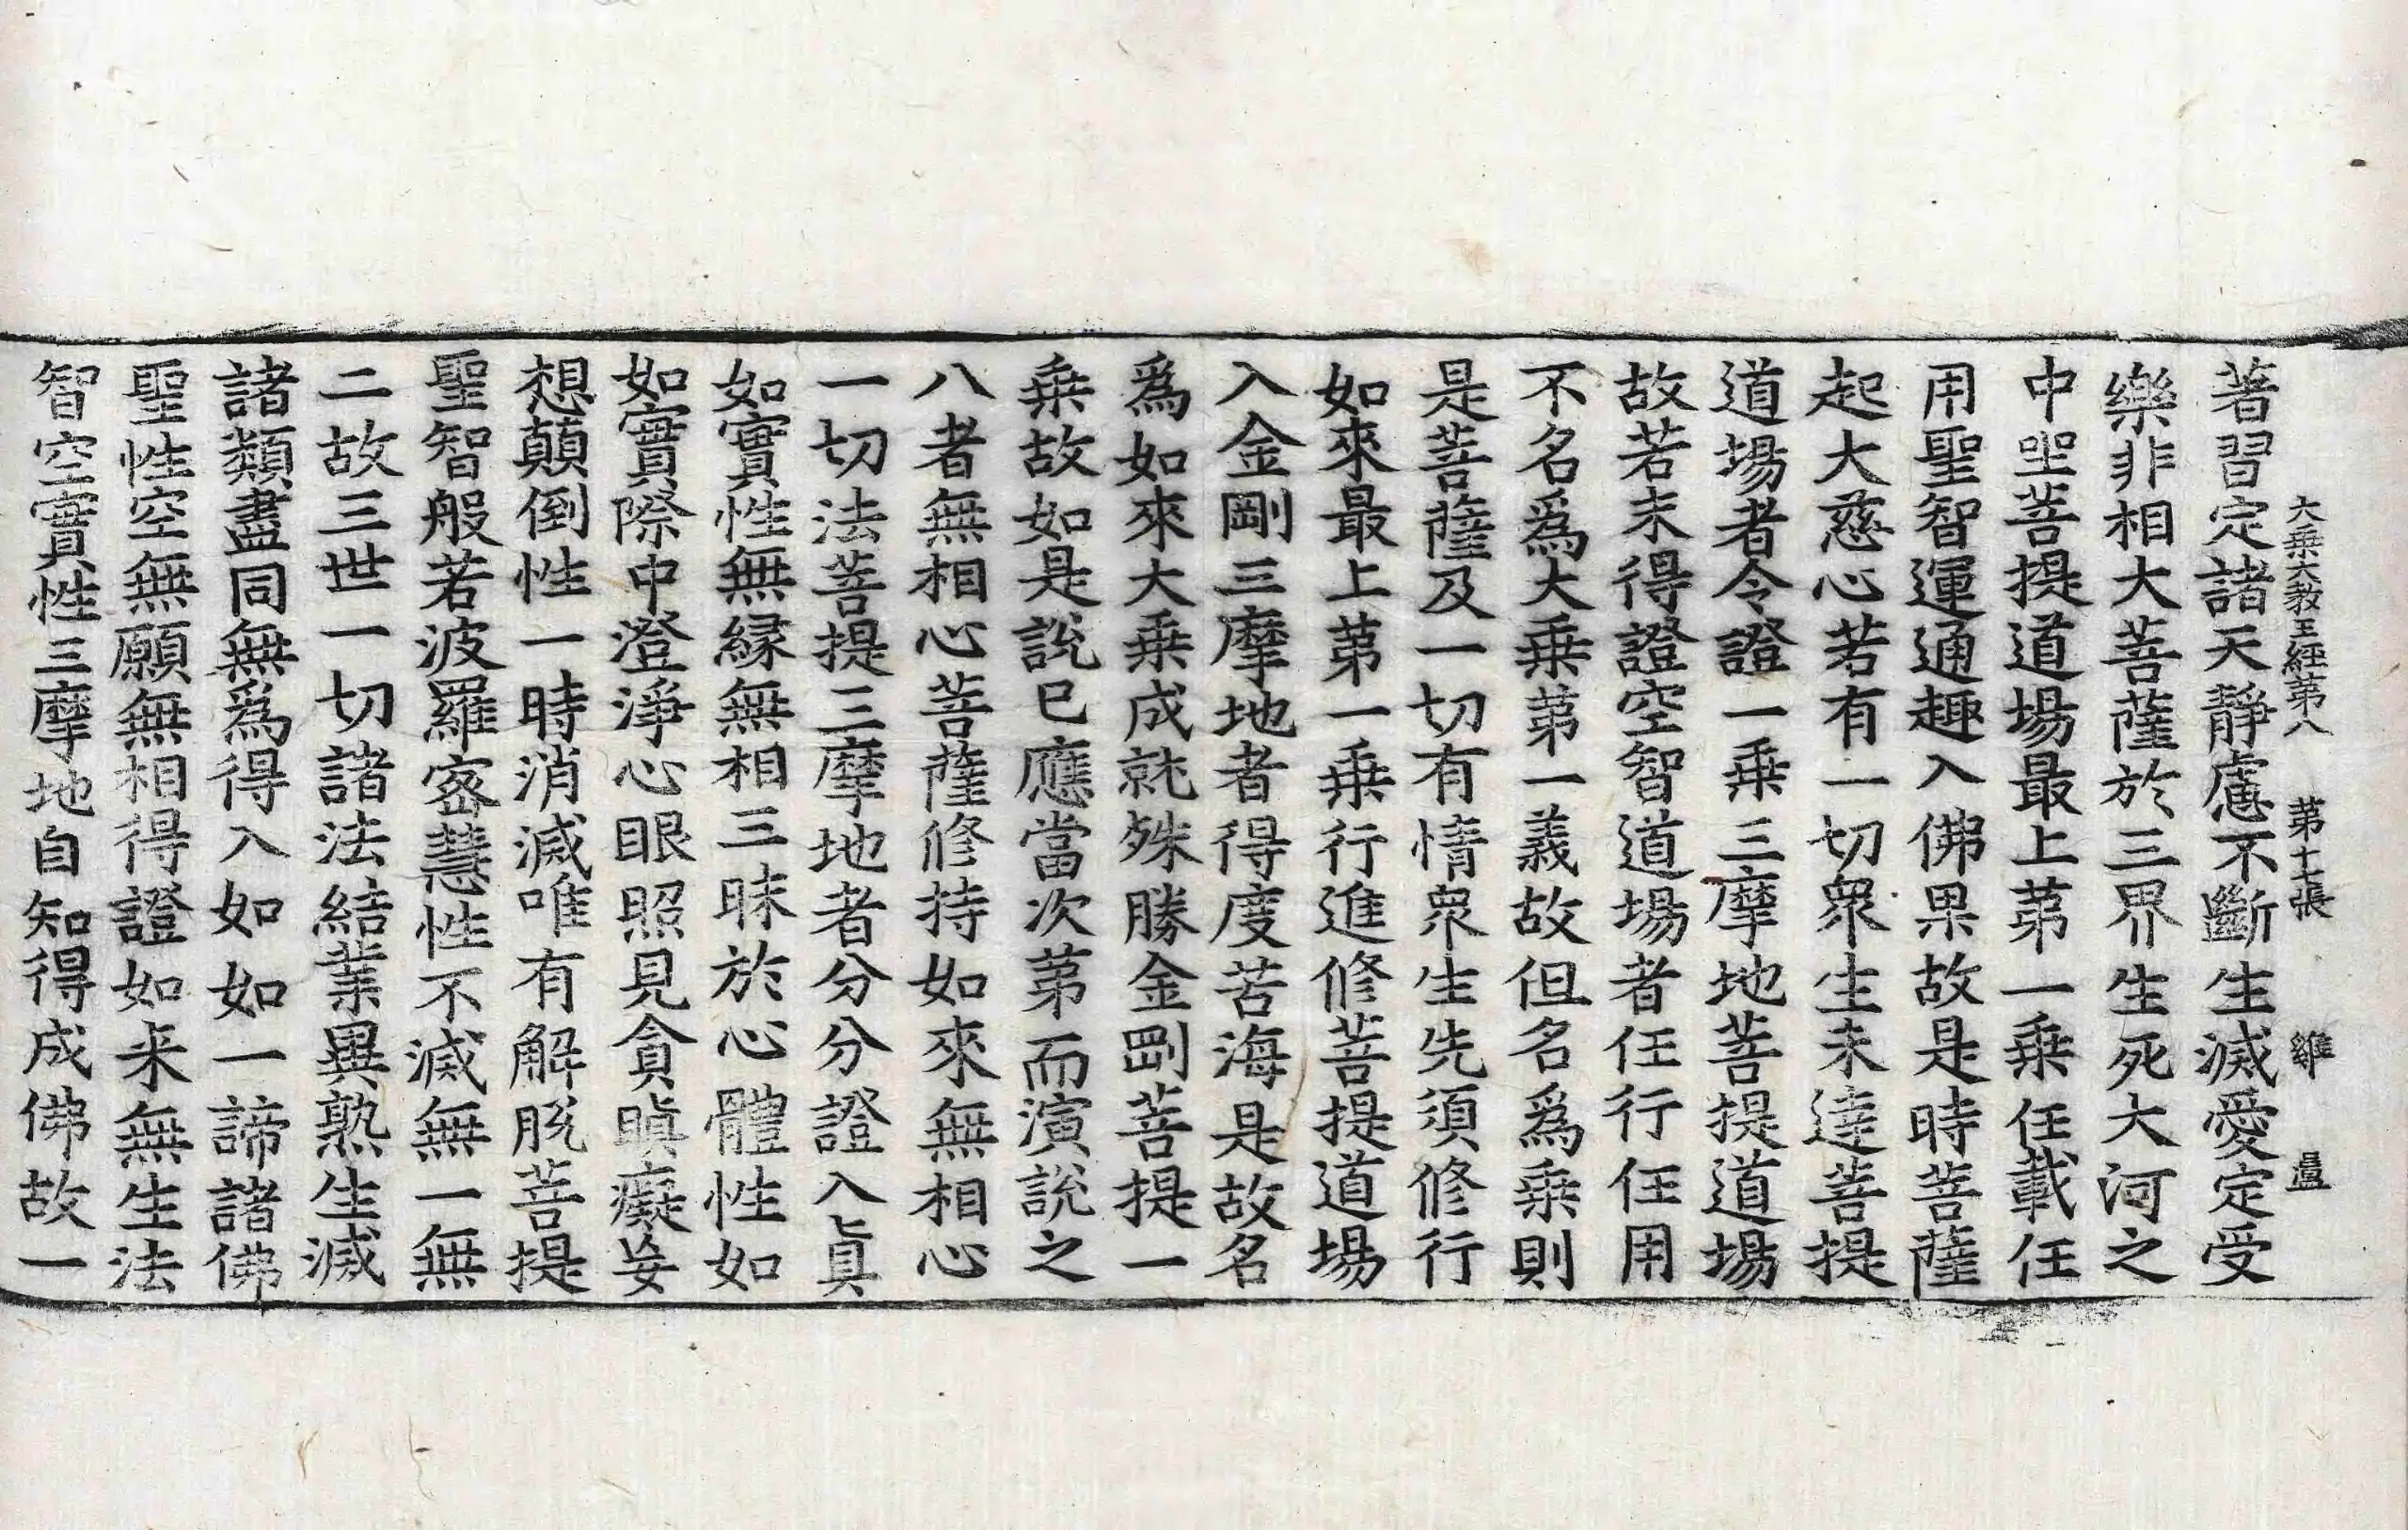 大乗大教王経第八 第十七張 雞
著習定諸天靜慮不斷生滅愛定受
樂非相大菩薩於三界生死大河之
中坐菩提道場最上第一乗任載任
用聖智運通趣入佛果故是時菩薩
起大慈心若有一切衆生未達菩提
道場者令證一乗三摩地菩提道場
故若未得證空智道場者任行任用
不名爲大乗第一義故但名爲乗則
是菩薩及一切有情衆生先須修行
如來最上第一乗行進修菩提道場
入金剛三摩地者得度苦海是故名
爲如來大乗成就殊勝金剛菩提一
乗故如是説已應當次第而演説之
八者無相心菩薩修持如來無相心
一切法菩提三摩地者分分證入眞
如實性無縁無相三昧於心體性如
如實際中澄淨心眼照見貪瞋癡妄
想顛倒性一時消滅唯有解脱菩提
聖智般若波羅蜜慧性不滅無一無
二故三世一切諸法結業異熟生滅
諸類盡同無爲得入如如一諦諸佛
聖性空無願無相得證如来無生法
智空實性三摩地自知得成佛故一